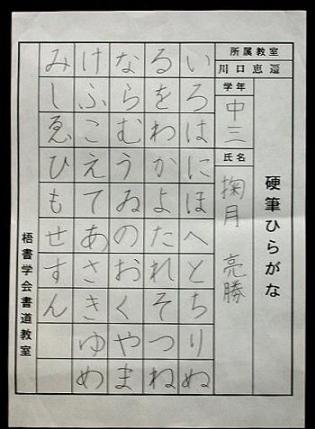 硬筆ひらがな
所属教室
川口
学年
中三
氏名
掬月 亮勝
いろはにほへとちりぬ
るをわかよたれそつね
ならむうゐのおくやま
けふこえてあさきゆめ
みしゑひもせすん
梧書学会書道教室